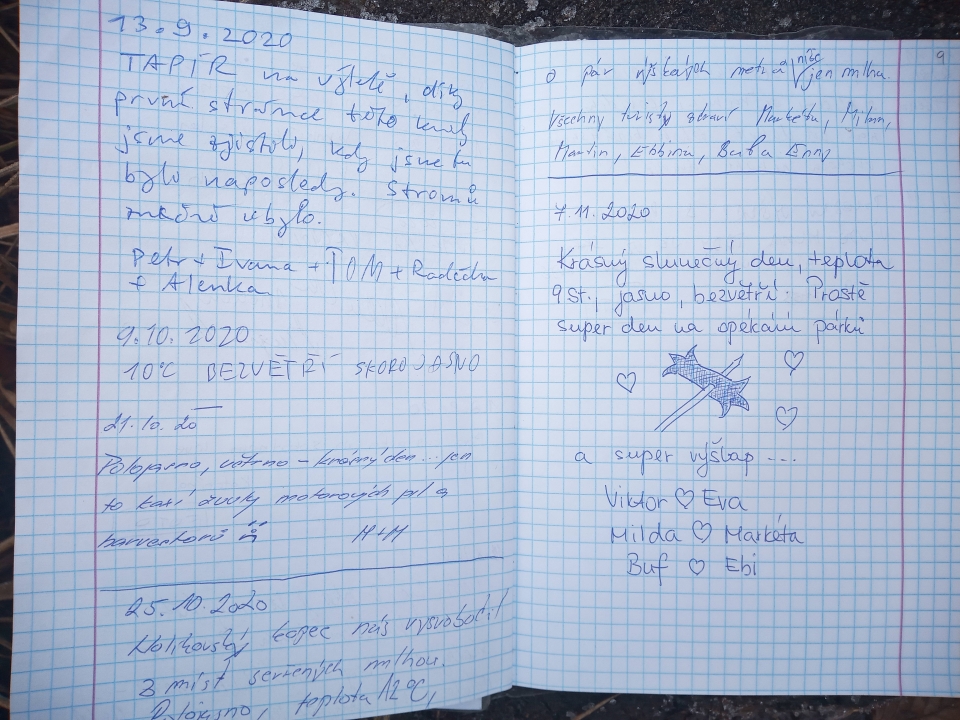 13.9.2020
TAPÍR na výletě, díky
první stránce této knihy
jsme zjistili, kdy jsme tu
byli naposledy. Stromů
mírně ubylo.
Petr + Ivana + TOM + Radečka
+ Alenka
9.10.2020
10°C BEZVĚTŘÍ SKORO JASNO
21.10.20
Polojasno, větrno – krásný den... jen
to kazí zvuky motorových pil a
harvestorů
H+H
25.10.2020
kopec nás vysvobodil
z míst sevřených mlhou.
Polojasno, teplota 12°C,
9
o pár výškových metrů níže jen mlha.
Všechny turisty zdraví Markéta, Milan,
Martin, Ebbina, Enny
7.11.2020
Krásný slunečný den, teplota
9 st., jasno, bezvětří. Prostě
super den na opékání párků
a super výšlap ...
Viktor ♡ Eva
Milda ♡ Markéta
Buf ♡ Ebi